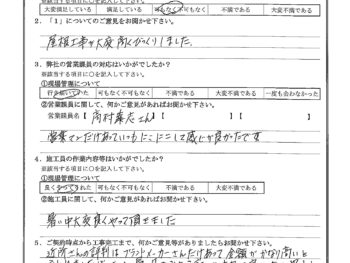 ※該当する項目に○を記入して下さい。
大変満足している 満足している 可もなく不可もなく 不満である 大変不満である
2．「1」についてのご意見をお聞かせ下さい。
屋根工事が大変
しました.
3．弊社の営業議員の対応はいかがでしたか？
※該当する項目に○を記入して下さい。
①現場管理について
行き届いてた 可もなく不可もなく 不満である 大変不満である 一度も合わなかった
②営業議員に関して、何かご意見があればお聞かせ下さい。
営業議員名【 さん 】【 】【 】
営業マンだけあっていつもにこにこして感じが良かったです
4．施工員の作業内容等はいかがでしたか？
※該当する項目に○を記入して下さい。
①現場管理について
良くやってくれた 可もなく不可もなく 不満である 大変不満である
②施工員に関して、何かご意見があればお聞かせ下さい。
暑い中大変良くやって頂きました
5．ご契約時点から工事完工まで、何かご意見等がありましたらお聞かせ下さい。
近所さんの評判はブランドメーカーさんだけあって金額がかなり高いと